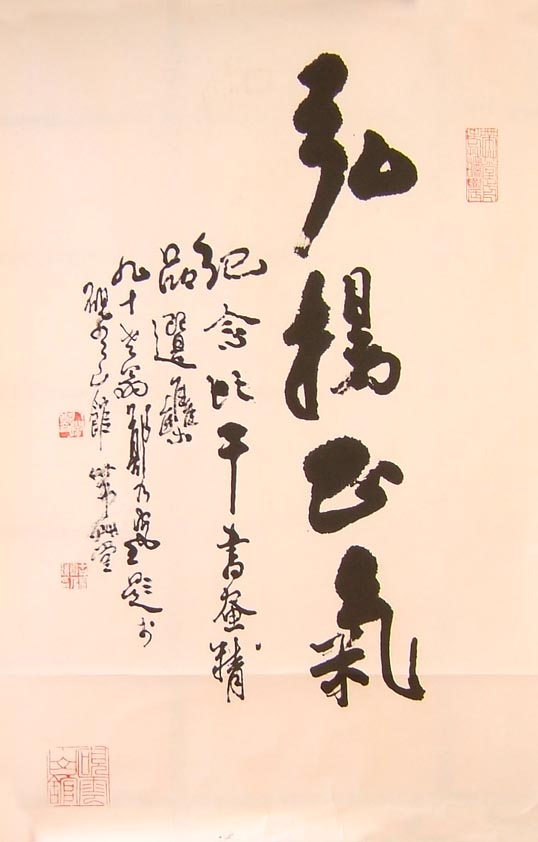 弘揚正氣
紀念比干書畫精
品選集
九十老翁鄭乃珖題於
硯雲山館